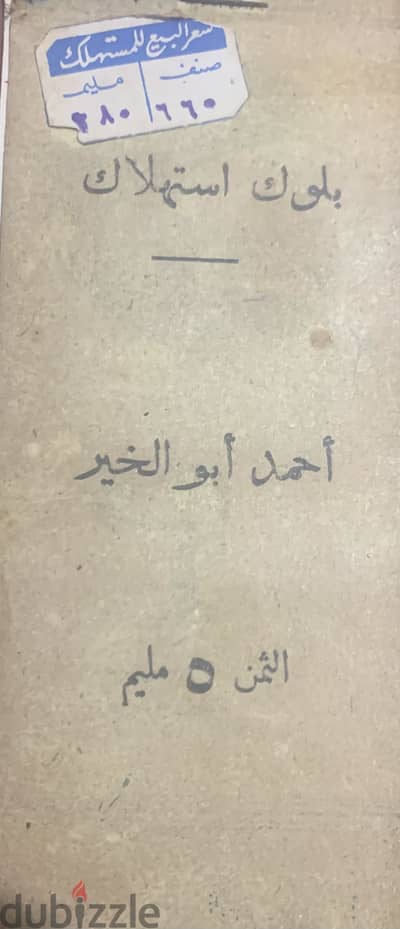 سعر البيع للمستهلك
صنف مليم
٦٦٠ ٣٨٠
بلوك استهلاك
أحمد أبو الخير
الثمن ٥ مليم
dubizzle